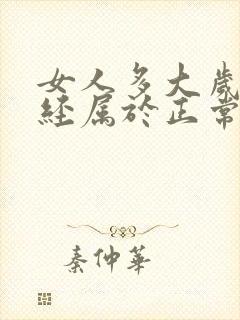 女人多大歲
经属於正常
秦仲華